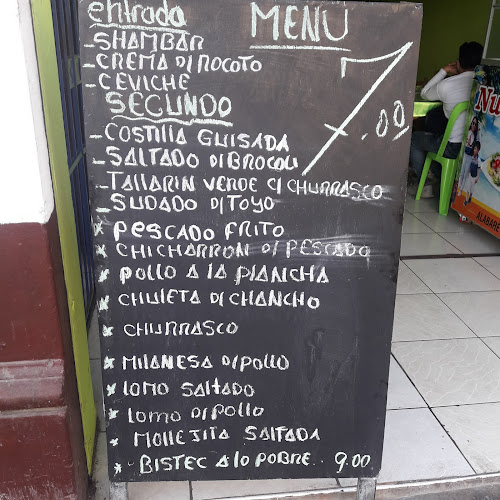 entrada MENU
-SHAMBAR
-CREMA D/ROCOTO
-CEVICHE
7.00
SEGUNDO
-COSTILLA GUISADA
-SALTADO D/BROCOLI
-TALLARIN VERDE C/CHURRASCO
-SUDADO D/TOYO
* PESCADO FRITO
* CHICHARRON D/PESCADO
* POLLO A LA PLANCHA
* CHULETA D/CHANCHO
* CHURRASCO
* MILANESA D/POLLO
* LOMO SALTADO
* LOMO D/POLLO
* MOLLEJITA SALTADA
* BISTEC A lo POBRE.. 9.00
Nu
ALABARE